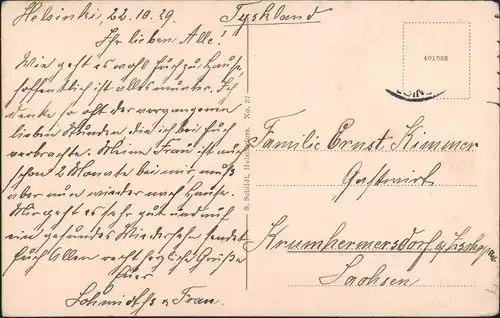 Helsinki, 22.10.29.
Tyskland
Ihr lieben Alle!
Wie geht es wohl Euch zu Hause,
hoffentlich ist alles munter. Ich
denke so oft der vergangenen
lieben Stunden die ich bei Euch
verbrachte. Meine Frau ist auch
schon 2 Monate bei mir, muß
aber nun wieder nach Hause.
Mir geht es sehr gut und auf
ein gesundes Wiedersehn sendet
Euch Allen recht herzliche Grüße
Euer
Schmidt u. Frau.
S. Schildt, Helsingfors. No. 37
401088
Familie Ernst Kimmer
Gastwirt
Krumhermersdorf b/Zschopau
Sachsen